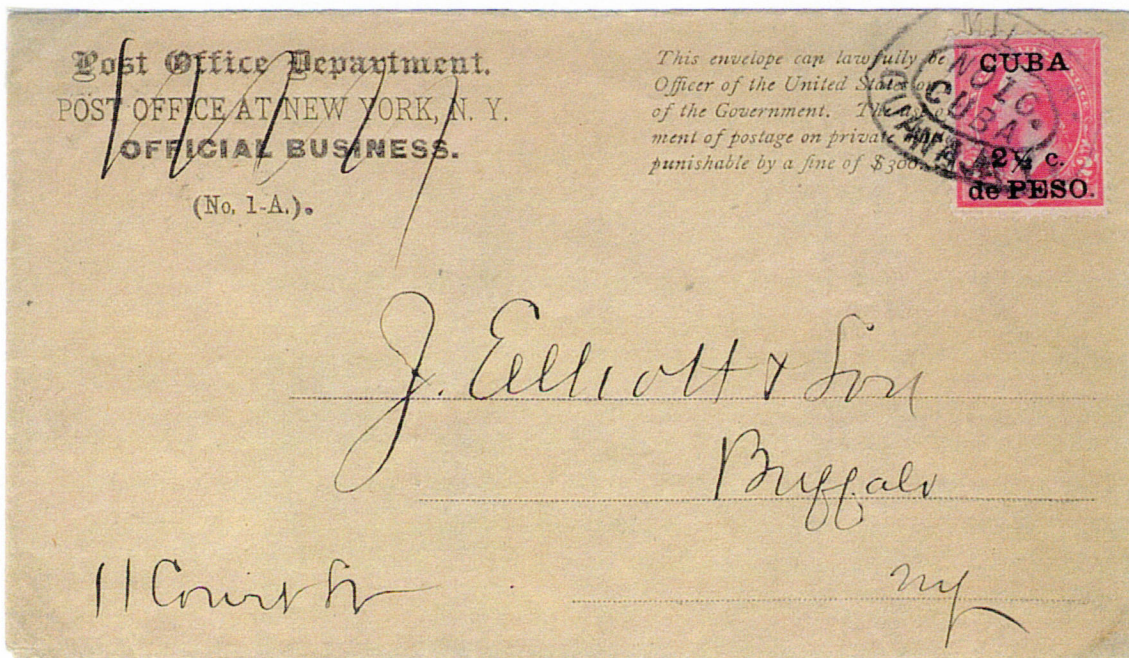 Post Office Department.
POST OFFICE AT NEW YORK, N. Y.
OFFICIAL BUSINESS.
(No. 1-A.).
This envelope can lawfully be
Officer of the United States on
of the Government. The
ment of postage on private
punishable by a fine of $300.
CUBA
2½ c.
de PESO.
CUBA
J. Elliott & Son
Buffalo
11 Court St
NY